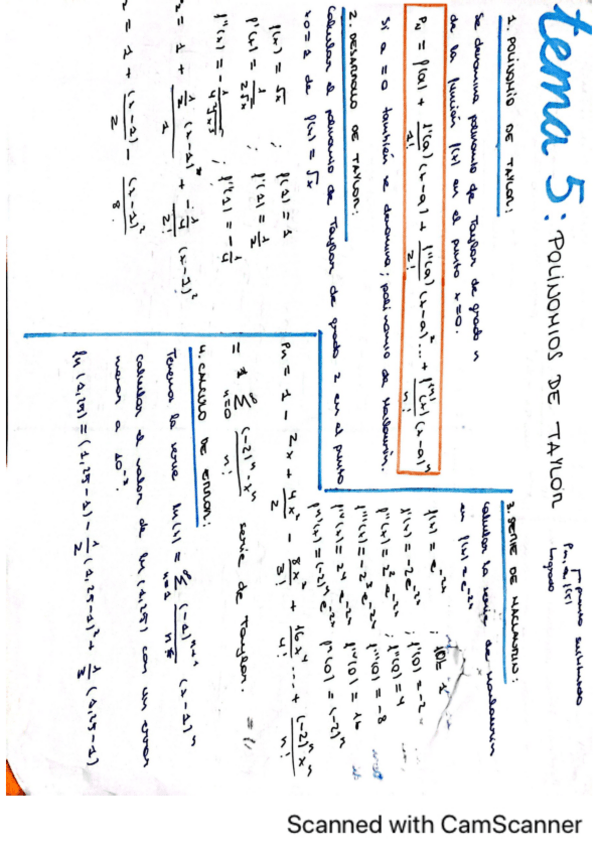 tema 5: POLINOMIOS DE TAYLOR
1. POLINOMIO DE TAYLOR:
Se denomina polinomio de Taylor de grado n
de la función f(x) en el punto x=0.
Pn = f(a) + f'(a)/1! (x-a) + f''(a)/2! (x-a)² ... + f⁽ⁿ⁾(x)/n! (x-a)ⁿ
Si a=0 también se denomina; polinomio de Maclaurin.
2. DESARROLLO DE TAYLOR:
Calcular el polinomio de Taylor de grado 2 en el punto
x0=1 de f(x) = √x
f(x) = √x ; f(1) = 1
f'(x) = 1/2√x ; f'(1) = 1/2
; f''(1) = -1/4
= 1 + 1/2 (x-1) + -1/4 (x-1)²
= 1 + (x-1)/2 - (x-1)²/8
3. SERIE DE MACLAURIN:
Calcular la serie de Maclaurin
en f(x) = e⁻²ˣ
f(x) = e⁻²ˣ ;
f'(x) = -2e⁻²ˣ ; f'(0) = -2
f''(x) = 2² e⁻²ˣ ; f''(0) = 4
f'''(x) = -2³ e⁻²ˣ f'''(0) = -8
2⁴ e⁻²ˣ f''''(0) = 16
fⁿ(x) = (-2)ⁿ e⁻²ˣ fⁿ(0) = (-2)ⁿ
Pn = 1 - 2x + 4x²/2 - 8x³/3! + 16x⁴/4! ... + (-2)ⁿ xⁿ/n!
Σ n=0 (-2)ⁿ·xⁿ/n! serie de Taylor.
4. CALCULO DE ERROR:
la serie ln(x) = Σ n=1 (-1)ⁿ⁺¹/n (x-1)ⁿ
calcular el valor de ln(1,25) con un error
menor a
ln(1,25) = (1,25-1) - 1/2 (1,25-1)² + 1/3 (1,25-1)
Scanned with CamScanner